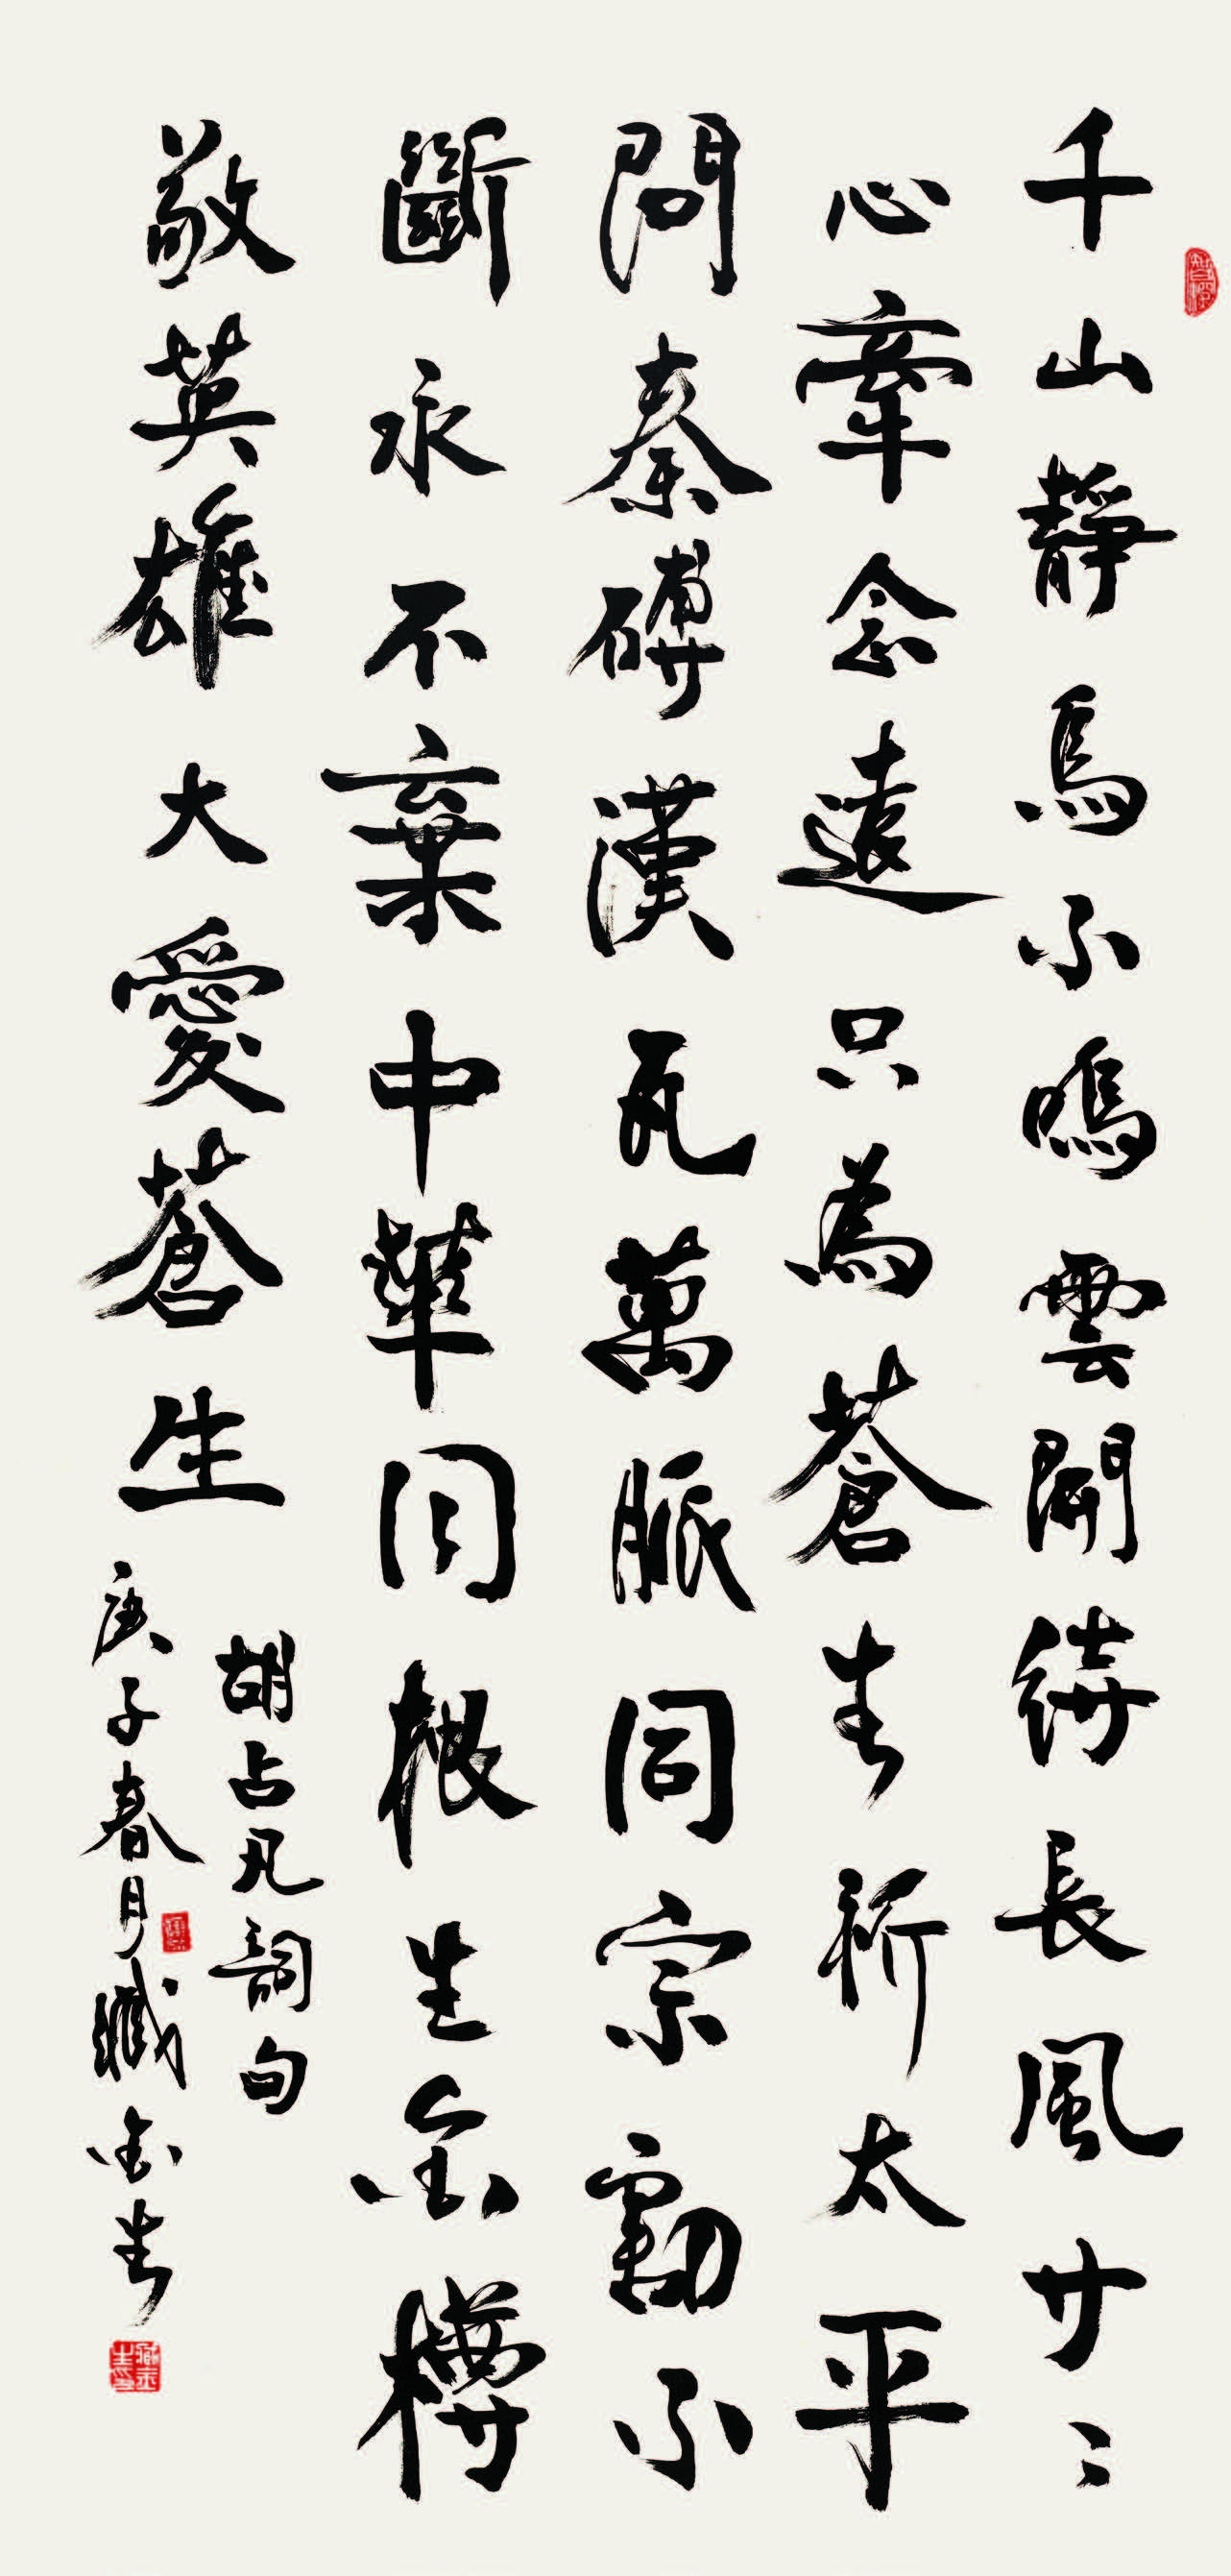 千山靜鳥不鳴雲開繞長風廿二
心牽念遠只為蒼生祈太平
問秦磚漢瓦萬脈同宗割不
斷永不棄中華同根生金樽
敬英雄大愛蒼生
胡占凡詞句
庚子春月臧金生